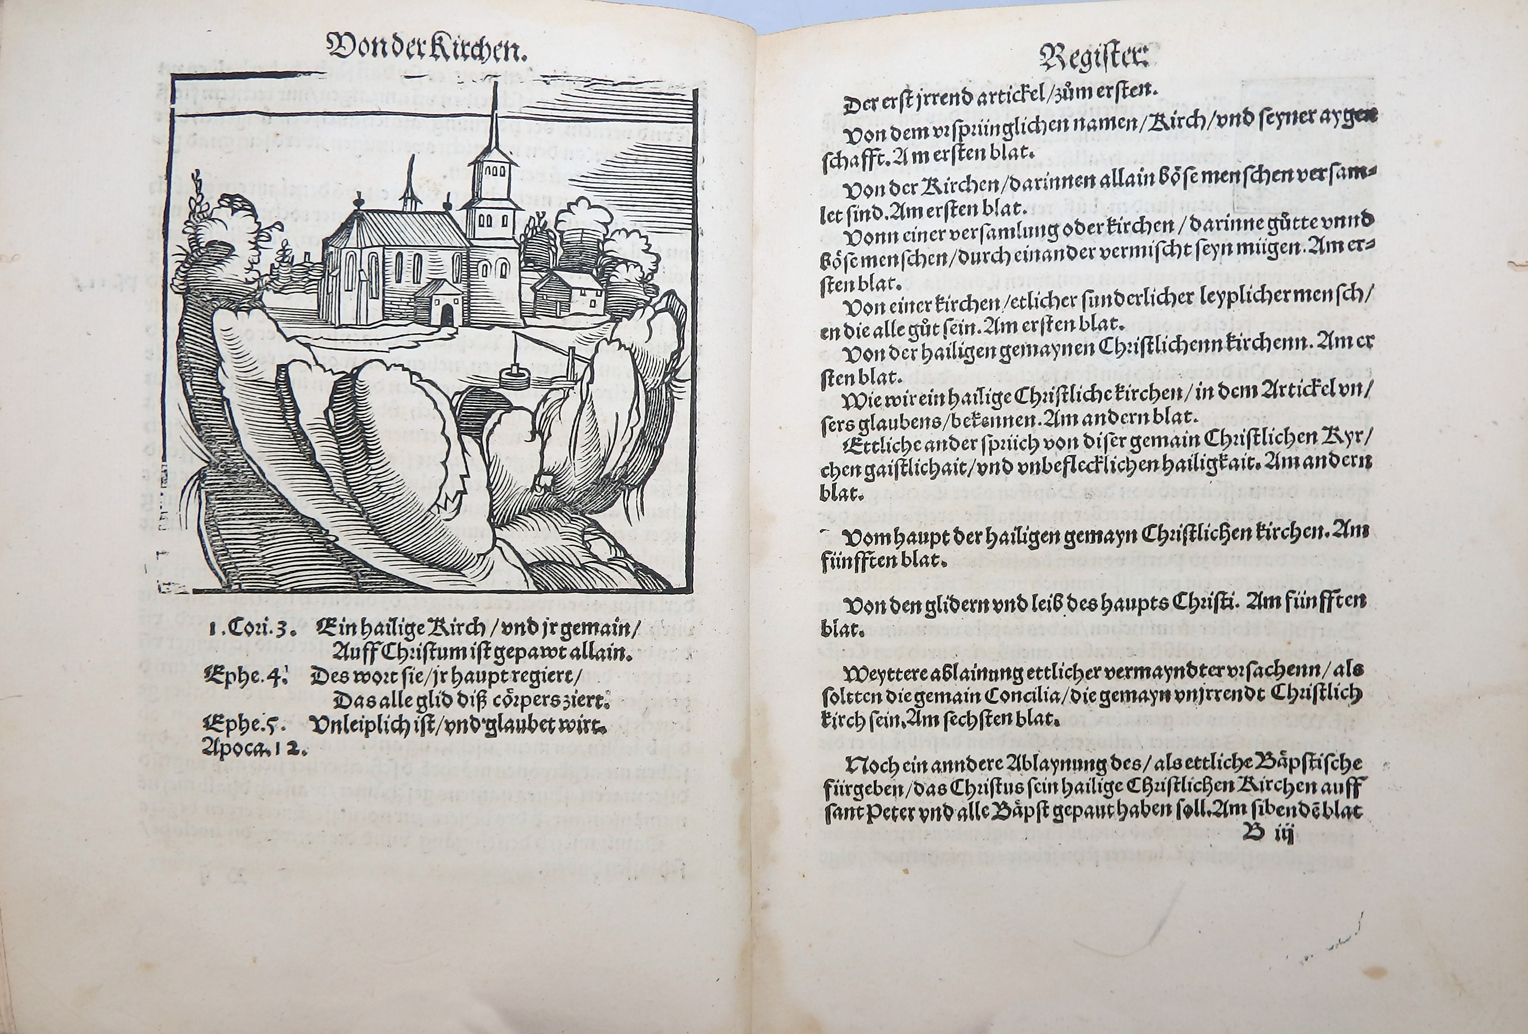 Von der Kirchen.
1. Cori. 3. Ein hailige Kirch / vnd jr gemain /
Auff Christum ist gepawt allain.
Ephe. 4. Des wort sie / jr haupt regiert /
Das alle glid diß cörpers ziert.
Ephe. 5. Vnleiplich ist / vnd glaubet wirt.
Apoca. 12.
Register.
Der erst jrrend artickel / zům ersten.
Von dem vrsprünglichen namen / Kirch / vnd seyner aygen
schafft. Am ersten blat.
Von der Kirchen / darinnen allain böse menschen versam=
let sind. Am ersten blat.
Vonn einer versamlung oder kirchen / darinne gůtte vnnd
böse menschen / durch einander vermischt seyn mügen. Am er=
sten blat.
Von einer kirchen / etlicher sunderlicher leyplicher mensch /
en die alle gůt sein. Am ersten blat.
Von der hailigen gemaynen Christlichenn kirchenn. Am er
sten blat.
Wie wir ein hailige Christliche kirchen / in dem Artickel vn /
sers glaubens / bekennen. Am andern blat.
Ettliche ander sprüch von diser gemain Christlichen Kyr /
chen gaistlichait / vnd vnbeflecklichen hailigkait. Am andern
blat.
Vom haupt der hailigen gemayn Christlichen kirchen. Am
fünfften blat.
Von den glidern vnd leib des haupts Christi. Am fünfften
blat.
Weyttere ablainung ettlicher vermayndter vrsachenn / als
soltten die gemain Concilia / die gemayn vnjrrendt Christlich
kirch sein. Am sechsten blat.
Noch ein anndere Ablaynung des / als ettliche Bäpstische
fürgeben / das Christus sein hailige Christlichen Kirchen auff
sant Peter vnd alle Bäpst gepaut haben soll. Am sibendē blat
B iij